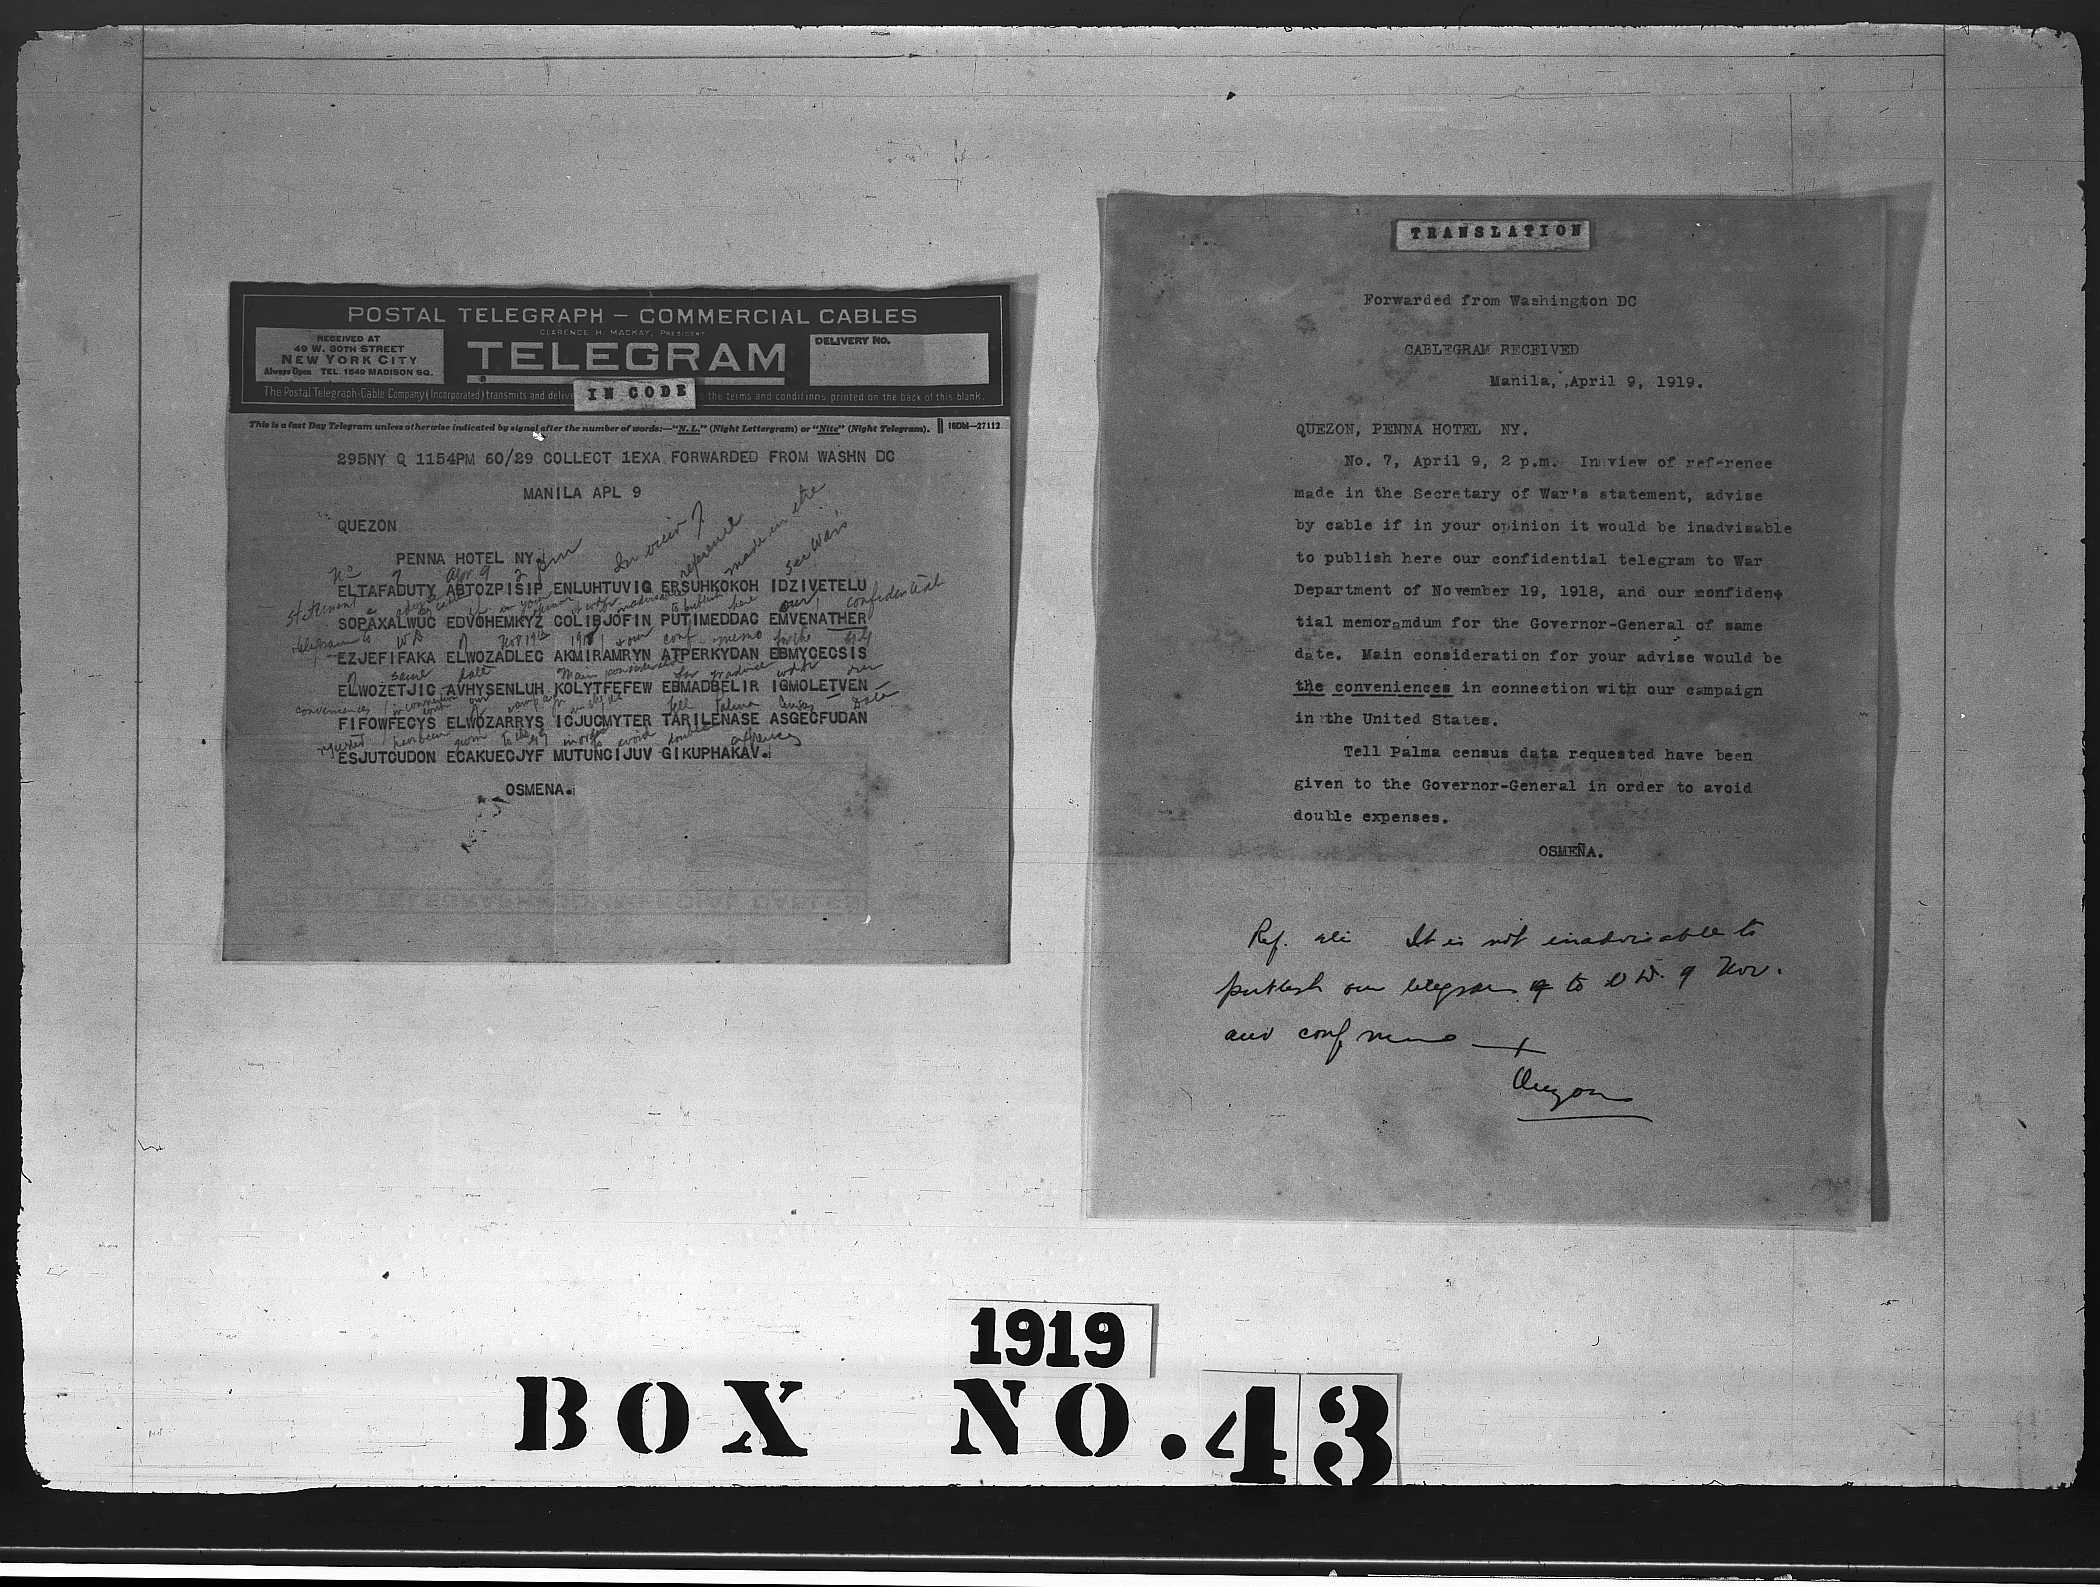 POSTAL TELEGRAPH — COMMERCIAL CABLES
CLARENCE H. MACKAY, PRESIDENT
RECEIVED AT
49 W. 30TH STREET
NEW YORK CITY
Always Open TEL. 1549 MADISON SQ.
TELEGRAM
DELIVERY NO.
The Postal Telegraph-Cable Company (Incorporated) transmits and delive
IN CODE
the terms and conditions printed on the back of this blank.
This is a fast Day Telegram unless otherwise indicated by signal after the number of words:—"N. L." (Night Lettergram) or "Nite" (Night Telegram).
295NY Q 1154PM 60/29 COLLECT 1EXA FORWARDED FROM WASHN DC
MANILA APL 9
QUEZON
PENNA HOTEL NY
No 7 Apr 9 2 pm In view of reference made in the sec war's
ELTAFADUTY ABTOZPISIP ENLUHTUVIG ERSUHKOKOH IDZIVETELU
statement in your to publish here our confidential
SOPAXALWUC EDVOHEMKYZ COLIBJOFIN PUTIMEDDAC EMVENATHER
telegram to WD of Nov 19th 1918 & our conf memo for the GG
EZJEFIFAKA ELWOZADLEC AKMIRAMRYN ATPERKYDAN EBMYCECSIS
of same date main consideration for advice
ELWOZETJIC AVHYSENLUH KOLYTFEFEW EBMADBELIR IGMOLETVEN
conveniences in connection our campaign tell Palma census data
FIFOWFECYS ELWOZARRYS ICJUCMYTER TARILENASE ASGECFUDAN
have been given to the GG in order to avoid double expenses
ESJUTCUDON ECAKUECJYF MUTUNCIJUV GIKUPHAKAV.
OSMENA.
TRANSLATION
Forwarded from Washington DC
CABLEGRAM RECEIVED
Manila, April 9, 1919.
QUEZON, PENNA HOTEL NY.
No. 7, April 9, 2 p.m. In view of reference
made in the Secretary of War's statement, advise
by cable if in your opinion it would be inadvisable
to publish here our confidential telegram to War
Department of November 19, 1918, and our confiden-
tial memoramdum for the Governor-General of same
date. Main consideration for your advise would be
the conveniences in connection with our campaign
in the United States.
Tell Palma census data requested have been
given to the Governor-General in order to avoid
double expenses.
OSMEÑA.
Ref. It is not inadvisable to
publish our telegram to W. of Nov.
and conf memo
Quezon
1919
BOX NO. 43